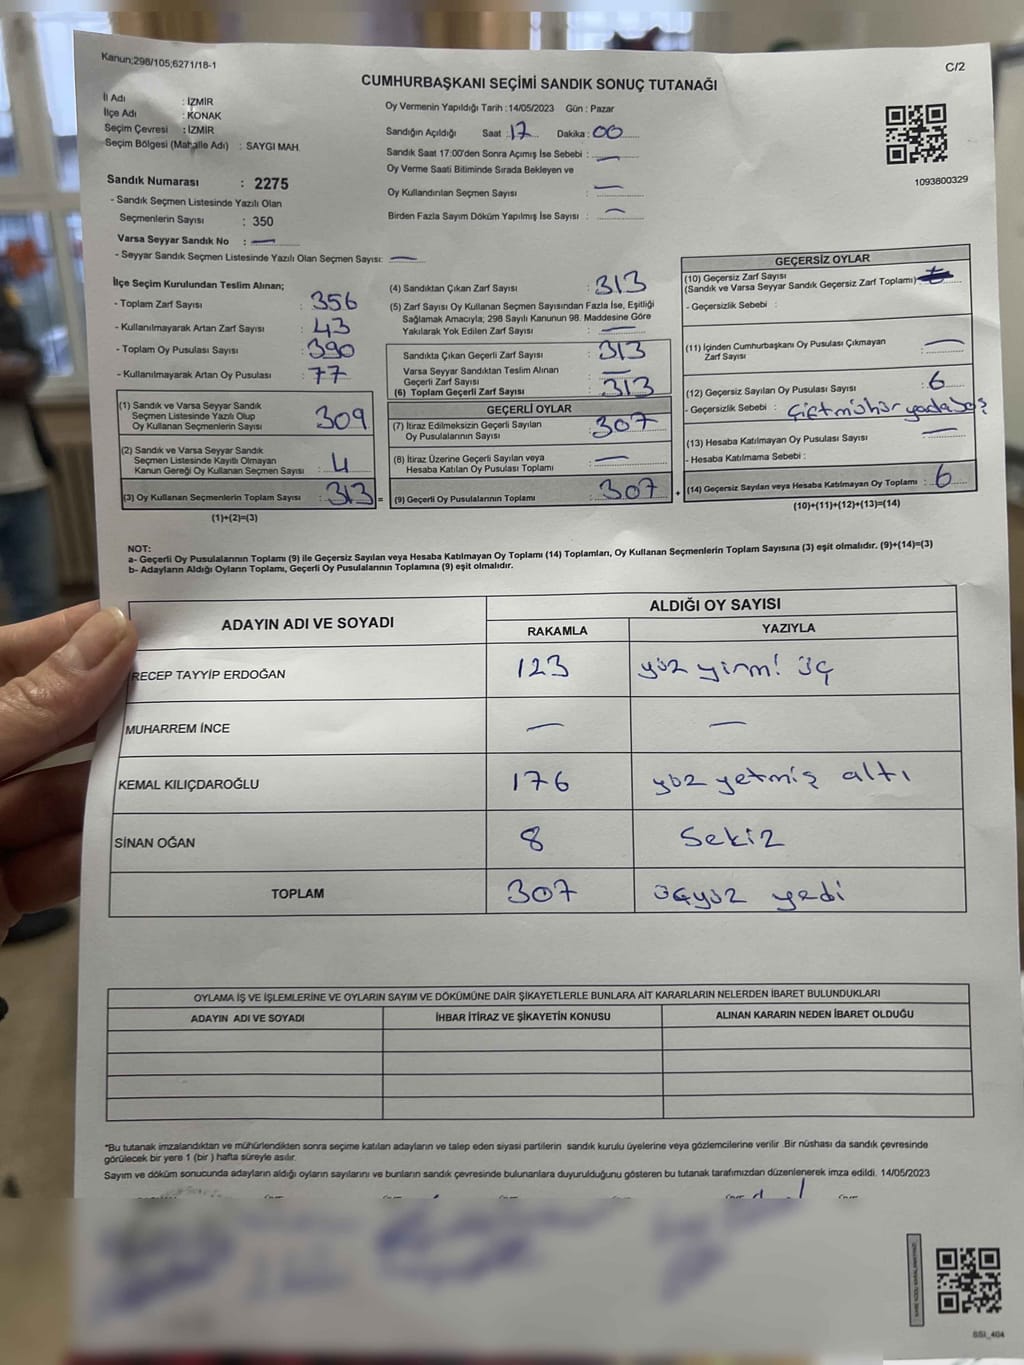 Kanun;298/105;6271/18-1
C/2
CUMHURBAŞKANI SEÇİMİ SANDIK SONUÇ TUTANAĞI
İl Adı : İZMİR
İlçe Adı : KONAK
Seçim Çevresi : İZMİR
Seçim Bölgesi (Mahalle Adı) : SAYGI MAH.
Sandık Numarası : 2275
- Sandık Seçmen Listesinde Yazılı Olan
Seçmenlerin Sayısı : 350
Varsa Seyyar Sandık No : —
- Seyyar Sandık Seçmen Listesinde Yazılı Olan Seçmen Sayısı: —
Oy Vermenin Yapıldığı Tarih : 14/05/2023 Gün : Pazar
Sandığın Açıldığı Saat : 17 Dakika : 00
Sandık Saat 17:00'den Sonra Açımış İse Sebebi : —
Oy Verme Saati Bitiminde Sırada Bekleyen ve
Oy Kullandırılan Seçmen Sayısı : —
Birden Fazla Sayım Döküm Yapılmış İse Sayısı : —
1093800329
İlçe Seçim Kurulundan Teslim Alınan;
- Toplam Zarf Sayısı : 356
- Kullanılmayarak Artan Zarf Sayısı : 43
- Toplam Oy Pusulası Sayısı : 390
- Kullanılmayarak Artan Oy Pusulası : 77
(1) Sandık ve Varsa Seyyar Sandık
Seçmen Listesinde Yazılı Olup
Oy Kullanan Seçmenlerin Sayısı : 309
(2) Sandık ve Varsa Seyyar Sandık
Seçmen Listesinde Kayıtlı Olmayan
Kanun Gereği Oy Kullanan Seçmen Sayısı : 4
(3) Oy Kullanan Seçmenlerin Toplam Sayısı : 313 =
(1)+(2)=(3)
(4) Sandıktan Çıkan Zarf Sayısı : 313
(5) Zarf Sayısı Oy Kullanan Seçmen Sayısından Fazla İse, Eşitliği
Sağlamak Amacıyla; 298 Sayılı Kanunun 98. Maddesine Göre
Yakılarak Yok Edilen Zarf Sayısı : —
Sandıkta Çıkan Geçerli Zarf Sayısı : 313
Varsa Seyyar Sandıktan Teslim Alınan
Geçerli Zarf Sayısı : —
(6) Toplam Geçerli Zarf Sayısı : 313
GEÇERLİ OYLAR
(7) İtiraz Edilmeksizin Geçerli Sayılan
Oy Pusulalarının Sayısı : 307
(8) İtiraz Üzerine Geçerli Sayılan veya
Hesaba Katılan Oy Pusulası Toplamı : —
(9) Geçerli Oy Pusulalarının Toplamı : 307 +
GEÇERSİZ OYLAR
(10) Geçersiz Zarf Sayısı
(Sandık ve Varsa Seyyar Sandık Geçersiz Zarf Toplamı) :
- Geçersizlik Sebebi :
(11) İçinden Cumhurbaşkanı Oy Pusulası Çıkmayan
Zarf Sayısı : —
(12) Geçersiz Sayılan Oy Pusulası Sayısı : 6
- Geçersizlik Sebebi : Çift mühür yada boş
(13) Hesaba Katılmayan Oy Pusulası Sayısı : —
- Hesaba Katılmama Sebebi :
(14) Geçersiz Sayılan veya Hesaba Katılmayan Oy Toplamı : 6
(10)+(11)+(12)+(13)=(14)
NOT:
a- Geçerli Oy Pusulalarının Toplamı (9) ile Geçersiz Sayılan veya Hesaba Katılmayan Oy Toplamı (14) Toplamları, Oy Kullanan Seçmenlerin Toplam Sayısına (3) eşit olmalıdır. (9)+(14)=(3)
b- Adayların Aldığı Oyların Toplamı, Geçerli Oy Pusulalarının Toplamına (9) eşit olmalıdır.
ADAYIN ADI VE SOYADI
ALDIĞI OY SAYISI
RAKAMLA YAZIYLA
RECEP TAYYİP ERDOĞAN 123 yüz yirmi üç
MUHARREM İNCE — —
KEMAL KILIÇDAROĞLU 176 yüz yetmiş altı
SİNAN OĞAN 8 Sekiz
TOPLAM 307 üçyüz yedi
OYLAMA İŞ VE İŞLEMLERİNE VE OYLARIN SAYIM VE DÖKÜMÜNE DAİR ŞİKAYETLERLE BUNLARA AİT KARARLARIN NELERDEN İBARET BULUNDUKLARI
ADAYIN ADI VE SOYADI İHBAR İTİRAZ VE ŞİKAYETİN KONUSU ALINAN KARARIN NEDEN İBARET OLDUĞU
*Bu tutanak imzalandıktan ve mühürlendikten sonra seçime katılan adayların ve talep eden siyasi partilerin sandık kurulu üyelerine veya gözlemcilerine verilir .Bir nüshası da sandık çevresinde
görülecek bir yere 1 (bir ) hafta süreyle asılır.
Sayım ve döküm sonucunda adayların aldığı oyların sayılarını ve bunların sandık çevresinde bulunanlara duyurulduğunu gösteren bu tutanak tarafımızdan düzenlenerek imza edildi. 14/05/2023
SSI_404